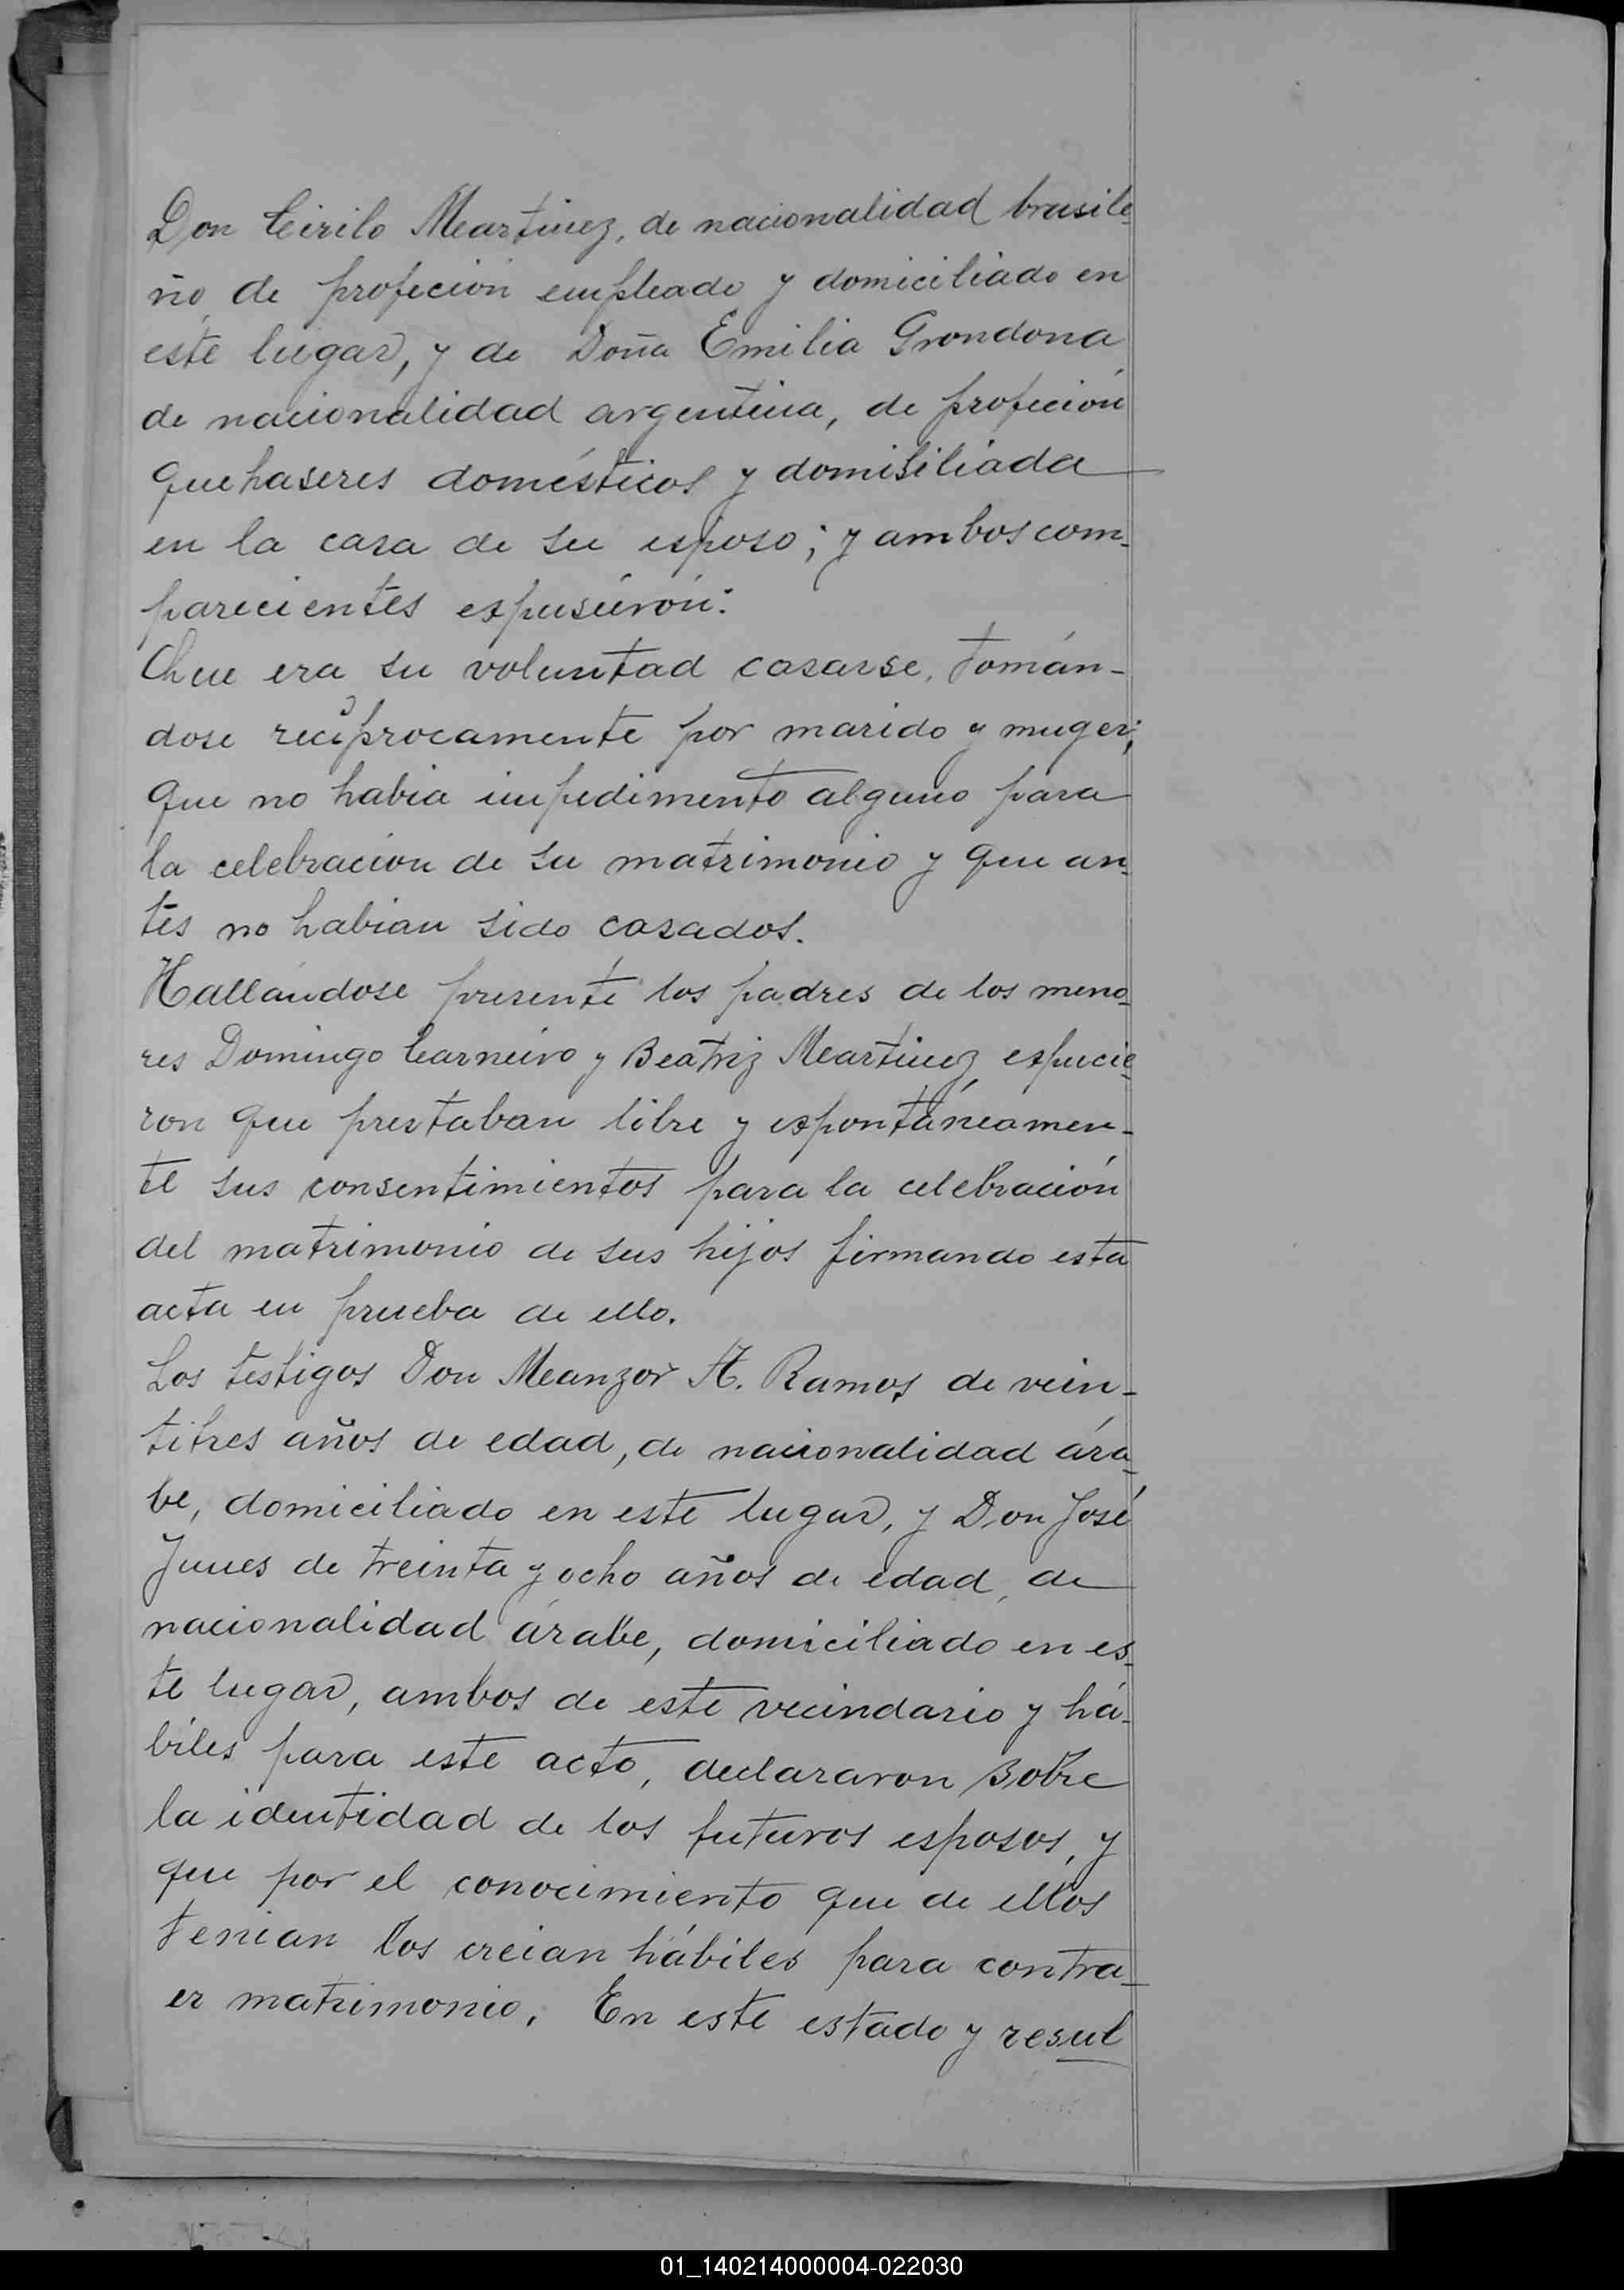 Don Cirilo Martinez, de nacionalidad brasile
ño, de profecion empleado y domiciliado en
este lugar, y de Doña Emilia Grondona
de nacionalidad argentina, de profeción
quehaseres domésticos y domisiliada
en la casa de su esposo; y ambos com-
parecientes espusieron:
Que era su voluntad casarse, tomán-
dose reciprocamente por marido y muger;
que no habia impedimento alguno para
la celebracion de su matrimonio y que an-
tes no habian sido casados.
Hallándose presente los padres de los meno-
res Domingo Carneiro y Beatriz Martinez espucie-
ron que prestaban libre y espontáneamen-
te sus consentimientos para la celebración
del matrimonio de sus hijos firmando esta
acta en prueba de ello.
Los testigos Don Manzor A. Ramos de vein-
titres años de edad, de nacionalidad ára-
be, domiciliado en este lugar, y Don José
Junes de treinta y ocho años de edad, de
nacionalidad árabe, domiciliado en es-
te lugar, ambos de este vecindario y há-
biles para este acto, declararon sobre
la identidad de los futuros esposos, y
que por el conocimiento que de ellos
tenian los creian hábiles para contra-
er matrimonio. En este estado y resul
01_140214000004-022030